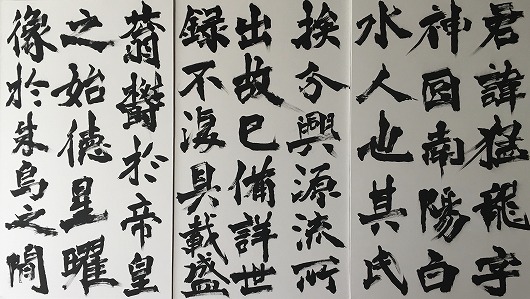 君諱猛龍字
神囧南陽白
水人也其氏
族分興源流所
出故已備詳世
録不復具載盛
蓊鬱於帝皇
之始德星曜
像於朱鳥之間